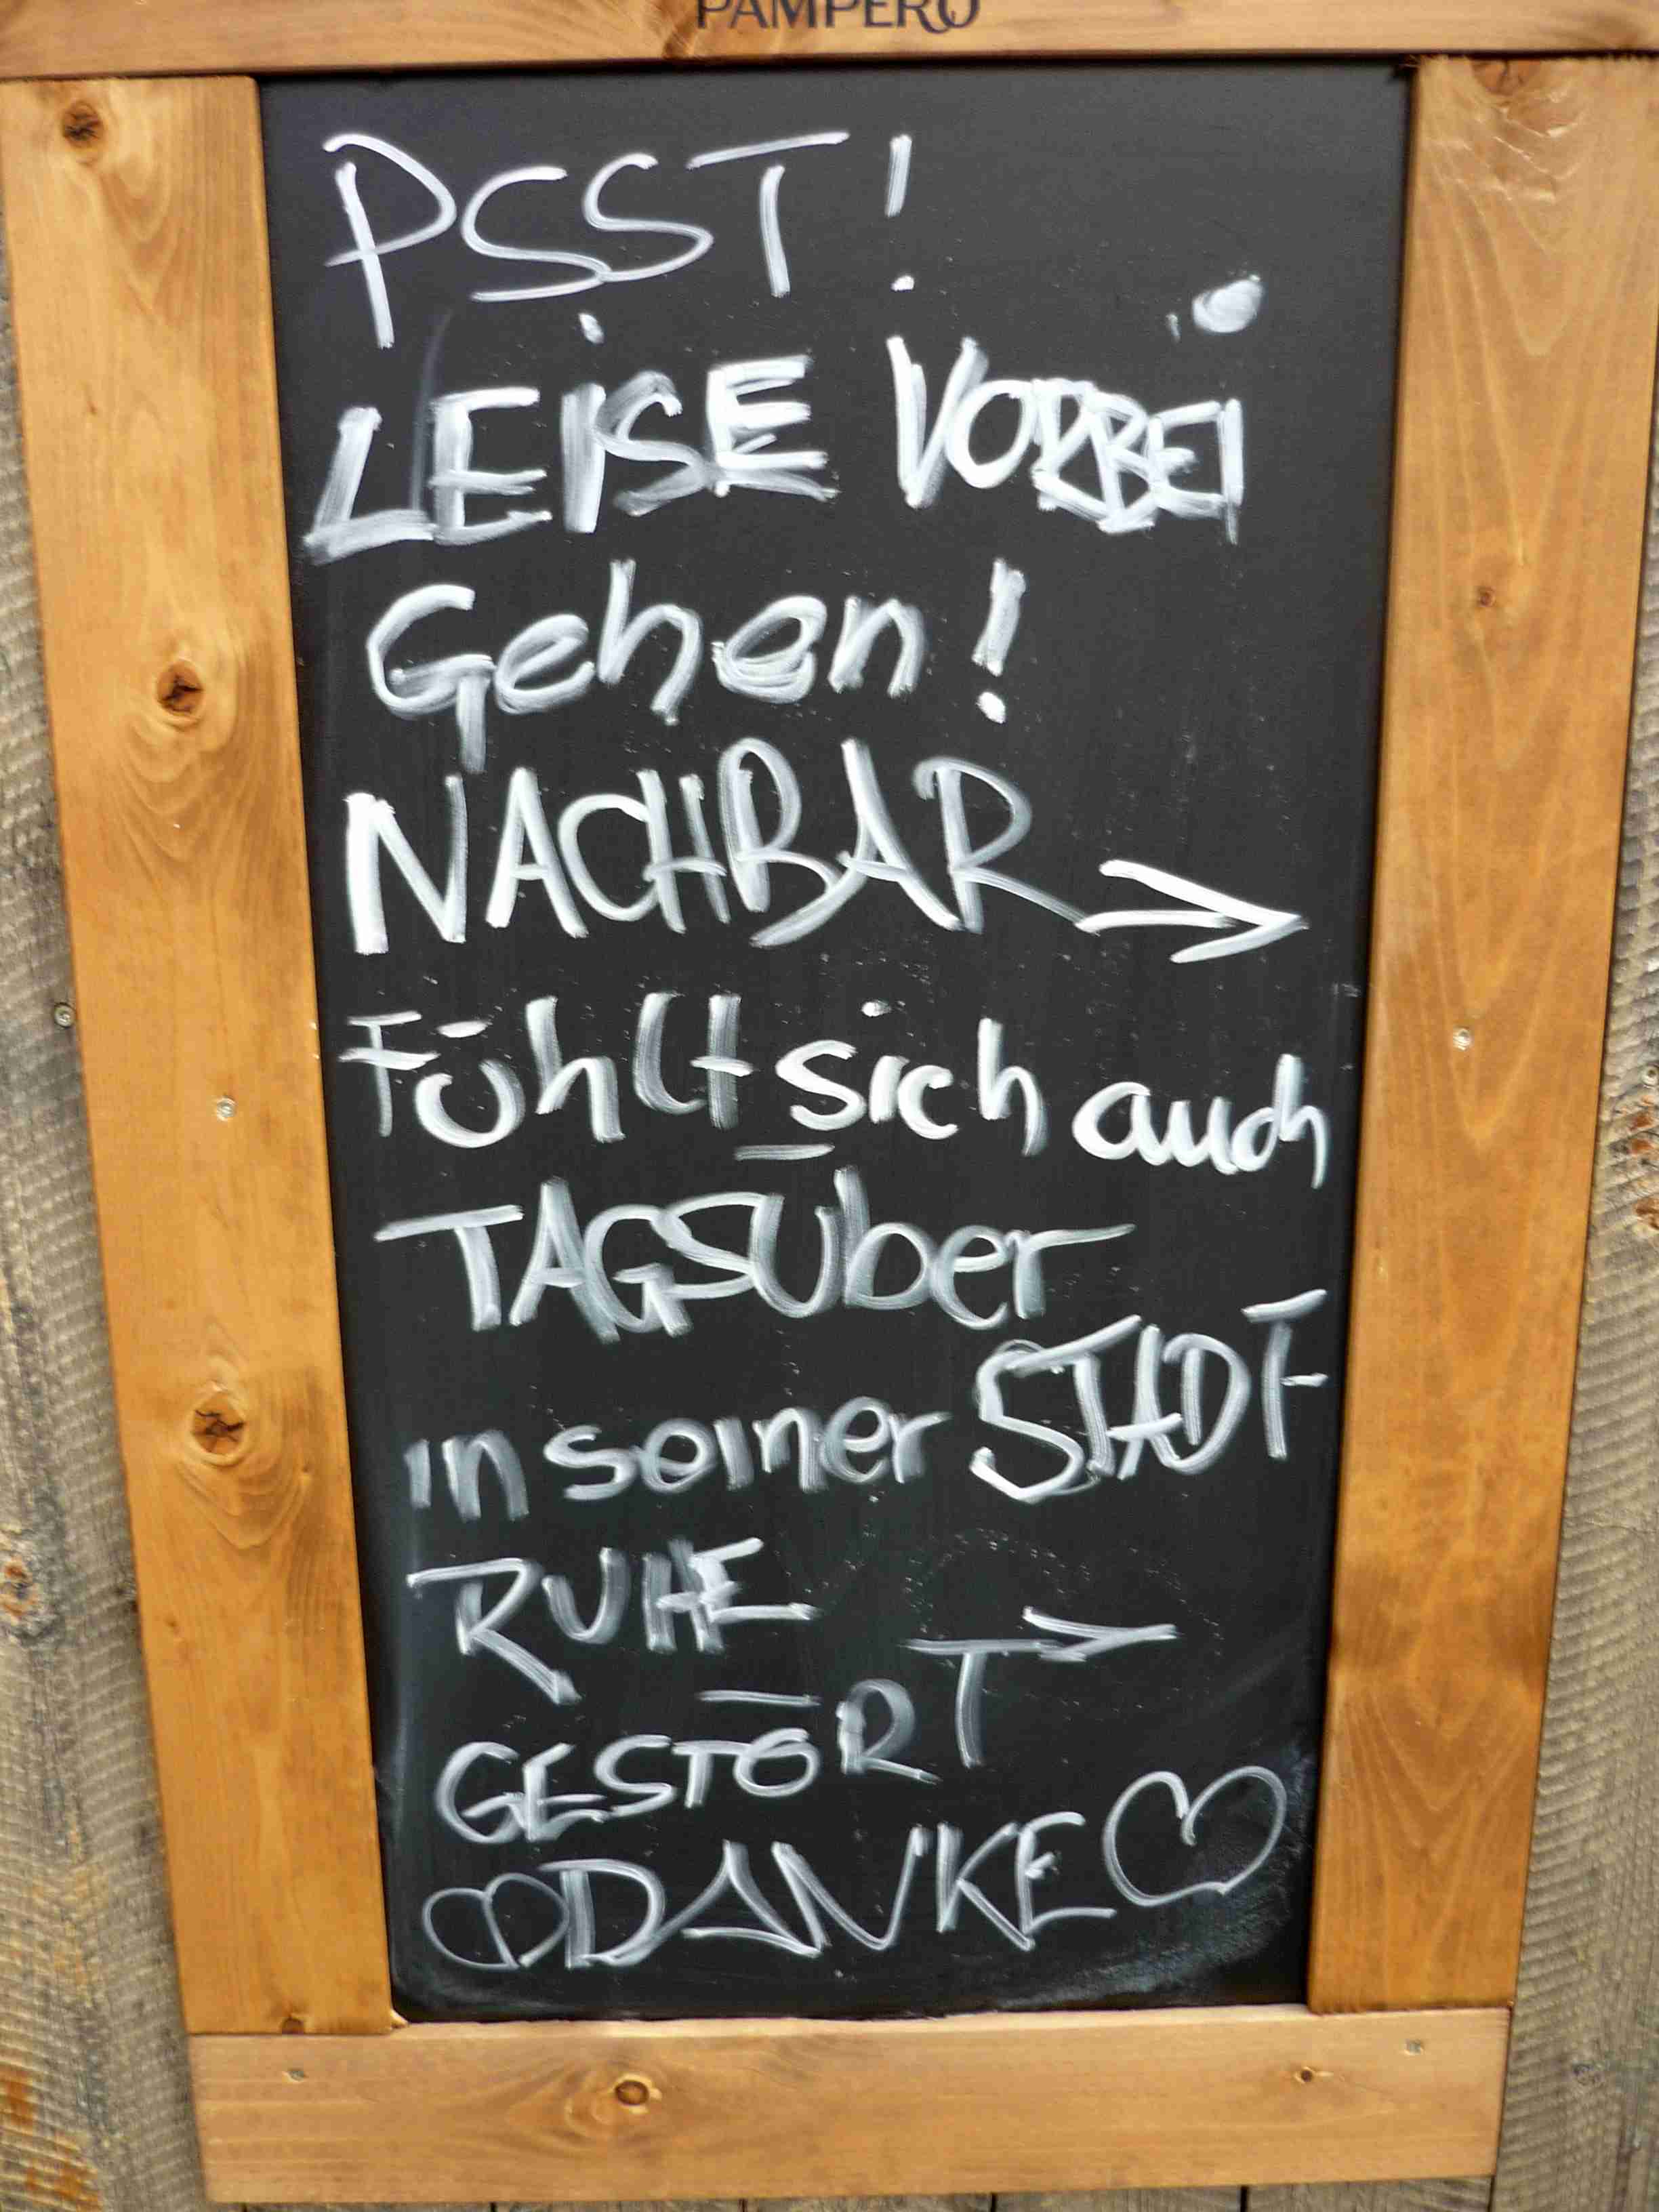 PAMPERO
PSST!
LEISE VORBEI
Gehen!
NACHBAR →
Fühlt sich auch
TAGSÜber
in seiner STADT
RUHE →
GESTÖRT
♡DANKE♡